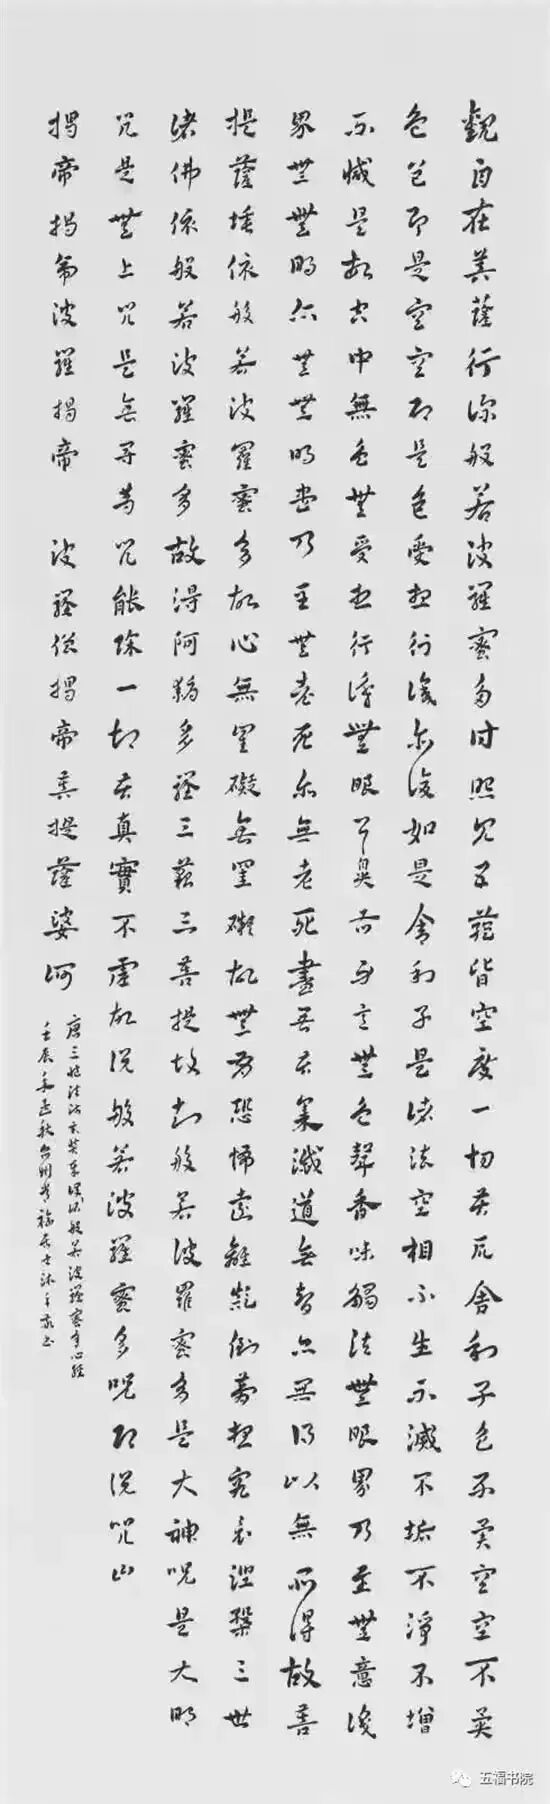 觀自在菩薩行深般若波羅蜜多時照見五蘊皆空度一切苦厄舍利子色不異空空不異
色色即是空空即是色受想行識亦復如是舍利子是諸法空相不生不滅不垢不淨不增
不減是故空中無色無受想行識無眼耳鼻舌身意無色聲香味觸法無眼界乃至無意識
界無無明亦無無明盡乃至無老死亦無老死盡無苦集滅道無智亦無得以無所得故菩
提薩埵依般若波羅蜜多故心無罣礙無罣礙故無有恐怖遠離顛倒夢想究竟涅槃三世
諸佛依般若波羅蜜多故得阿耨多羅三藐三菩提故知般若波羅蜜多是大神呪是大明
咒是無上咒是無等等咒能除一切苦真實不虛故說般若波羅蜜多呪即說咒曰
揭帝揭帝波羅揭帝 波羅僧揭帝菩提薩婆訶
唐三藏法師玄奘奉詔譯般若波羅蜜多心經
壬辰年孟秋台州福居士沐手敬書
五福书院